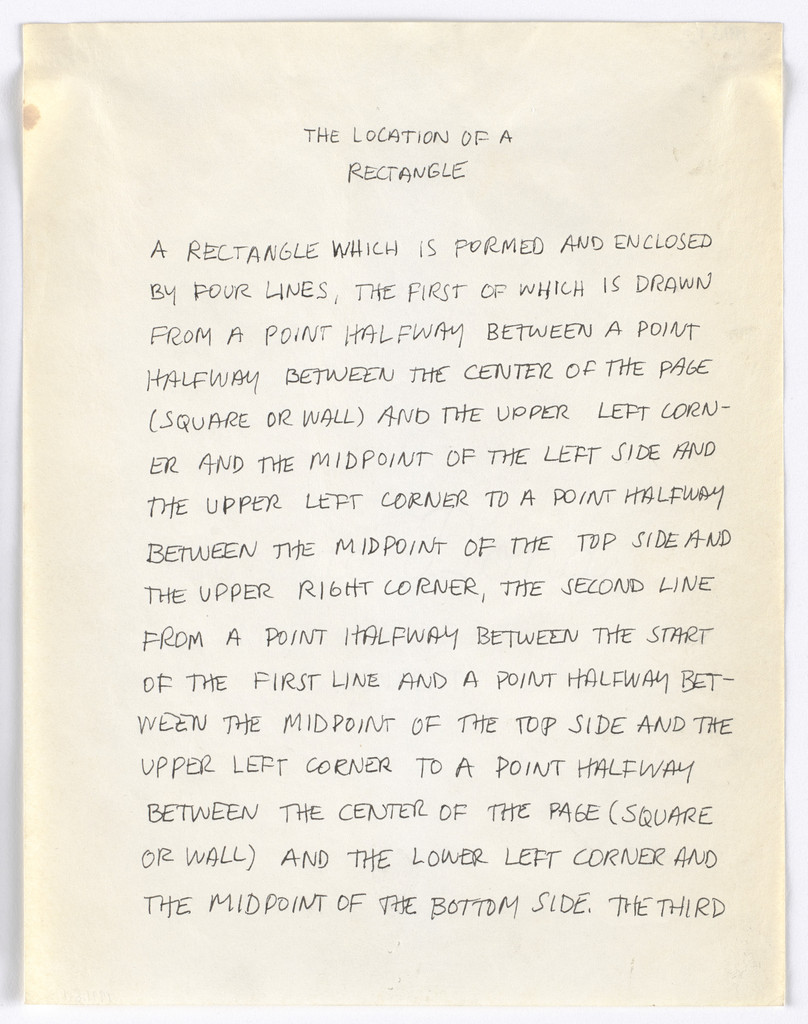 THE LOCATION OF A
RECTANGLE
A RECTANGLE WHICH IS FORMED AND ENCLOSED
BY FOUR LINES, THE FIRST OF WHICH IS DRAWN
FROM A POINT HALFWAY BETWEEN A POINT
HALFWAY BETWEEN THE CENTER OF THE PAGE
(SQUARE OR WALL) AND THE UPPER LEFT CORN-
ER AND THE MIDPOINT OF THE LEFT SIDE AND
THE UPPER LEFT CORNER TO A POINT HALFWAY
BETWEEN THE MIDPOINT OF THE TOP SIDE AND
THE UPPER RIGHT CORNER, THE SECOND LINE
FROM A POINT HALFWAY BETWEEN THE START
OF THE FIRST LINE AND A POINT HALFWAY BET-
WEEN THE MIDPOINT OF THE TOP SIDE AND THE
UPPER LEFT CORNER TO A POINT HALFWAY
BETWEEN THE CENTER OF THE PAGE (SQUARE
OR WALL) AND THE LOWER LEFT CORNER AND
THE MIDPOINT OF THE BOTTOM SIDE. THE THIRD